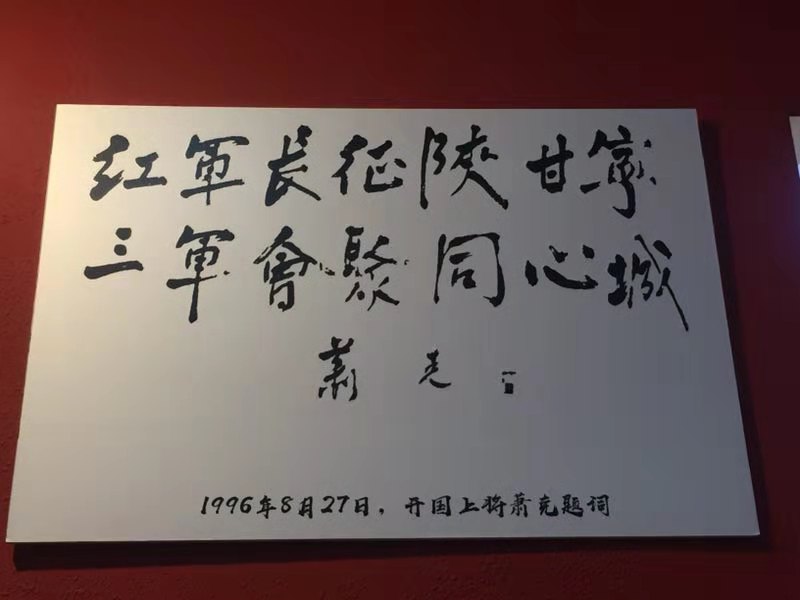 红軍長征陝甘寧
三軍會聚同心城
萧克
1996年8月27日，开国上将萧克题词